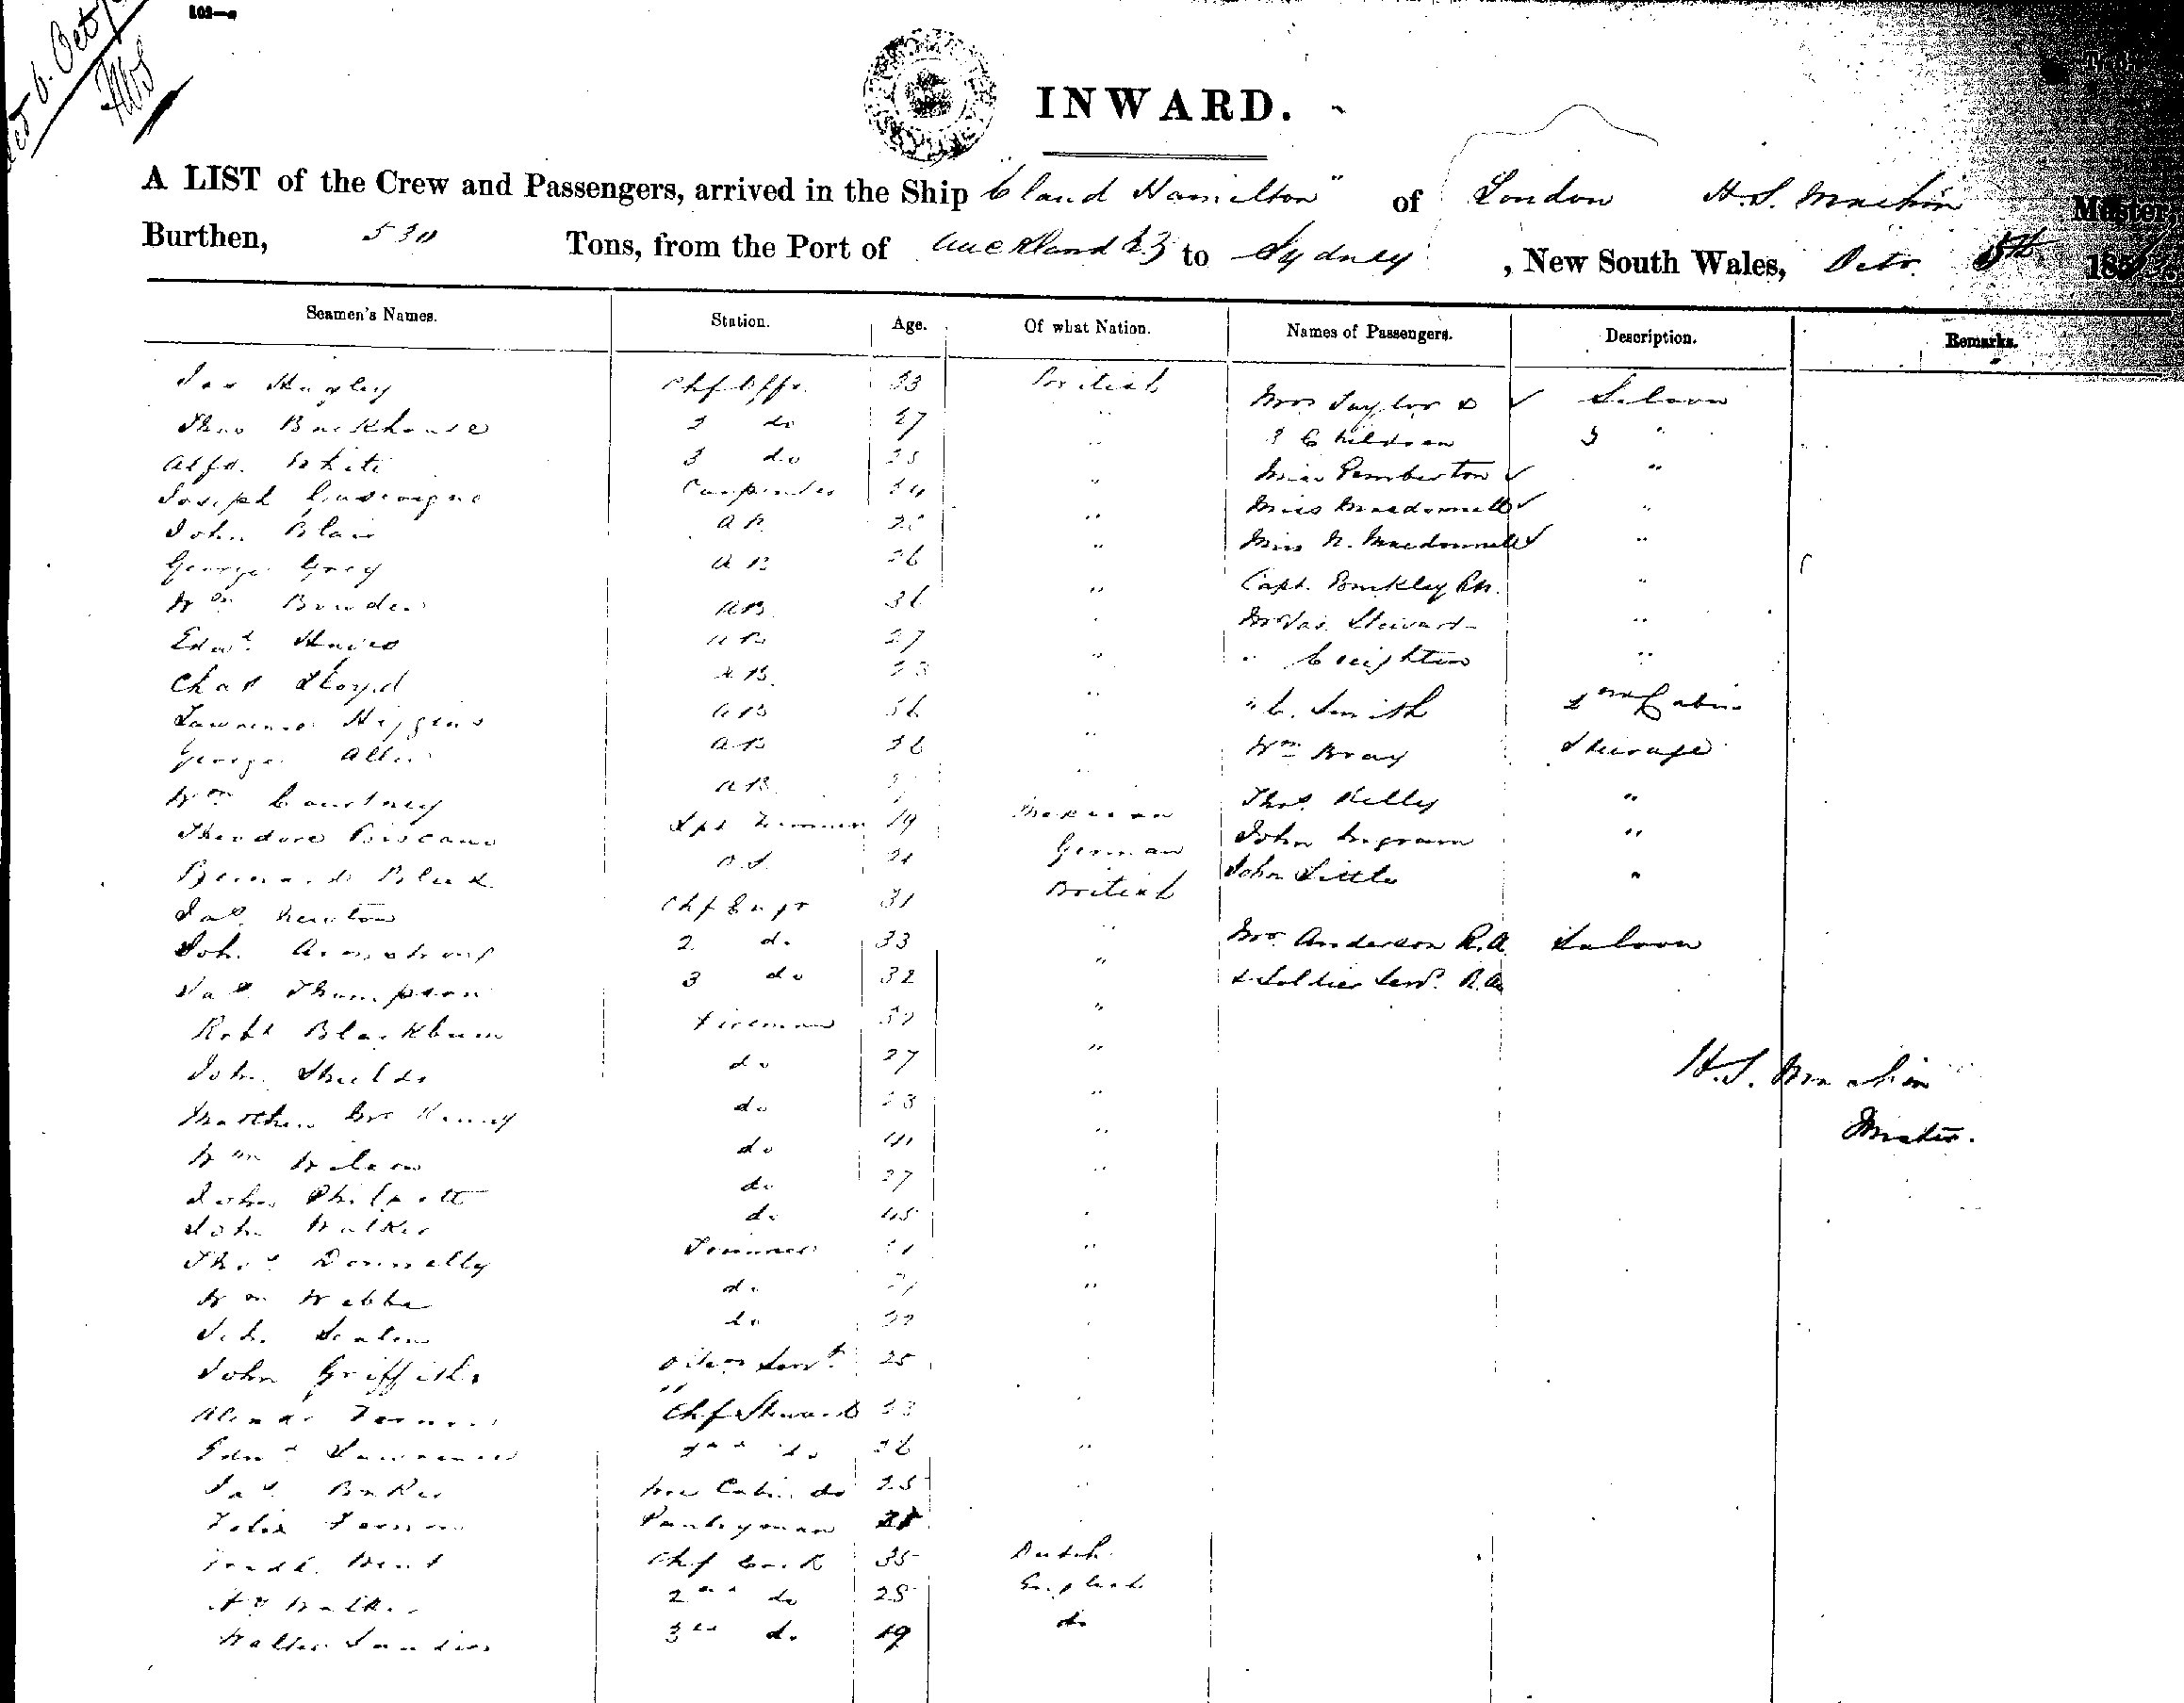 INWARD.
A LIST of the Crew and Passengers, arrived in the Ship "Claud Hamilton" of London H.S. Machin Master
Burthen, 530 Tons, from the Port of Auckland NZ to Sydney, New South Wales, Octr. 5th 186
Seamen's Names. Station. Age. Of what Nation. Names of Passengers. Description. Remarks.
Jas Chf Offr. 33 British Mrs Taylor & ✓ Saloon
Thos Backhouse 2 do 27 " 3 Children 3 "
Alfd. White 3 do 25 " Miss Pemberton ✓ "
Joseph Gascoigne Carpenter 24 " Miss Macdonnell ✓ "
John Blair AB " Miss N. Macdonnell ✓ "
George Grey AB 26 " Capt. RN. "
Wm Bowden AB 36 " Mr Jas. Steward "
Edwd. Hayes AB 27 " " Creighton "
Chas Lloyd AB 23 " " C. Smith 2nd Cabin
Lawrence Higgins AB 36 " Wm Bray Steerage
George Allen AB 36 " Thos. Kelly "
Wm Courtney AB " John Ingram "
Theodore Lps Trimmer 19 Mexican John Little "
O.S. 21 German
Jas. Newton Chf Engr 31 British
Joh. Armstrong 2 do 33 " Mr. Anderson R.A. Saloon
Jas. Thompson 3 do 32 " & Soldier Servt. R.A.
Robt Blackburn Fireman 32 "
John Shields do 27 " H.S. Machin
Matthew McKenny do 23 " Master.
Wm Wilson do 41 "
John Philpott do 27 "
John Walker do 45 "
Thos Donnelly Trimmer 21 "
Wm Webbe do 21 "
do 22
John Griffiths Servt. 25
Chf Steward 33
Edwd Lawrence 2nd do 26 "
Jas. Baker Fore Cabin do 25 "
Felix Pantryman 21
Chf Cook 35 Dutch
Hy Walker 2nd do 28 English
Walter 3rd do 19 do